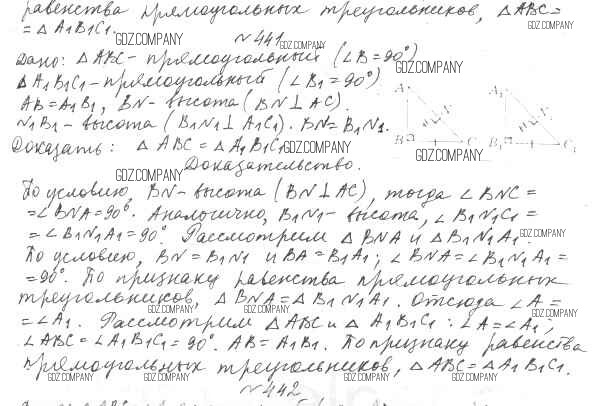 равенства прямоугольных треугольников, △ABC=
= △A₁B₁C₁.
GDZ.COMPANY
GDZ.COMPANY
№441
GDZ.COMPANY
Дано: △ABC - прямоугольный (∠B=90°)
GDZ.COMPANY
△A₁B₁C₁ - прямоугольный (∠B₁=90°)
AB=A₁B₁, BN - высота (BN⊥AC).
N₁B₁ - высота (B₁N₁⊥A₁C₁). BN=B₁N₁.
A N B C
A₁ N₁ B₁ C₁
Доказать: △ABC=△A₁B₁C₁
GDZ.COMPANY
GDZ.COMPANY
Доказательство.
GDZ.COMPANY
По условию, BN - высота (BN⊥AC), тогда ∠BNC=
=∠BNA=90°. Аналогично, B₁N₁ - высота, ∠B₁N₁C₁=
=∠B₁N₁A₁=90°. Рассмотрим △BNA и △B₁N₁A₁.
GDZ.COMPANY
По условию, BN=B₁N₁ и BA=B₁A₁; ∠BNA=∠B₁N₁A₁=
=90°. По признаку равенства прямоугольных
треугольников, △BNA=△B₁N₁A₁. Отсюда ∠A=
GDZ.COMPANY GDZ.COMPANY GDZ.COMPANY GDZ.COMPANY
=∠A₁. Рассмотрим △ABC и △A₁B₁C₁: ∠A=∠A₁,
∠ABC=∠A₁B₁C₁=90°. AB=A₁B₁. По признаку равенства
прямоугольных треугольников, △ABC=△A₁B₁C₁.
GDZ.COMPANY GDZ.COMPANY GDZ.COMPANY GDZ.COMPANY
№442